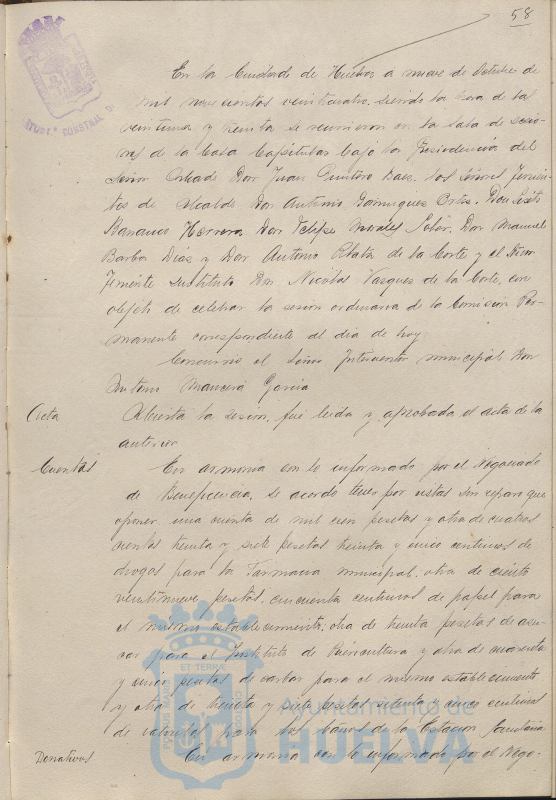 58
En la Ciudad de Huelva a nueve de Octubre de
mil novecientos veinticuatro, siendo la hora de las
veintiuna y treinta se reunieron en la sala de sesio-
nes de la Casa Capitular bajo la Presidencia del
Señor Alcalde Don Juan Quintero Baez, los Señores Tenien-
tes de Alcalde Don Antonio Dominguez Ortiz, Don
Herrera, Don Felipe Morales Don Manuel
Barba Diaz y Don Antonio de la Corte y el
Teniente Sustituto Don Nicolás Vazquez de la Corte, con
objeto de celebrar la sesión ordinaria de la Comisión Per-
manente correspondiente al día de hoy.
Concurrió el Señor Interventor municipal Don
Antonio Mancera Garcia
Acta
Abierta la sesión, fué leida y aprobada el acta de la
anterior
Cuentas
En armonia con lo informado por el Negociado
de Beneficencia, se acordó tener por vistas sin reparo que
oponer una cuenta de mil cien pesetas y otra de cuatro
cientas treinta y siete pesetas treinta y cinco centimos de
drogas para la Farmacia municipal, otra de ciento
veintinueve pesetas, cincuenta centimos de papel para
el mismo establecimiento, otra de treinta pesetas de azu-
car para el Instituto de Puericultura y otra de cuarenta
y cinco pesetas de carbon para el mismo establecimiento
y otra de treinta y siete pesetas setenta y cinco centimos
de para los baños de la Estacion Sanitaria
Donativos
En armonia con lo informado por el Nego-
ET TERRA
PORTUS MARIS
CUSTODIA
Ayuntamiento de
HUELVA